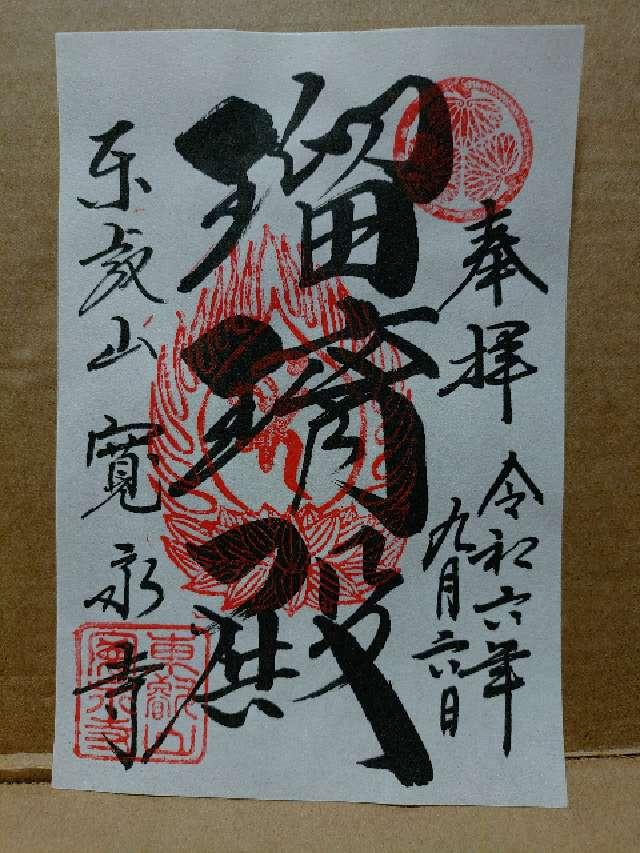 奉拝
令和六年
九月六日
瑠璃殿
東叡山 寛永寺
東叡山
寛永寺